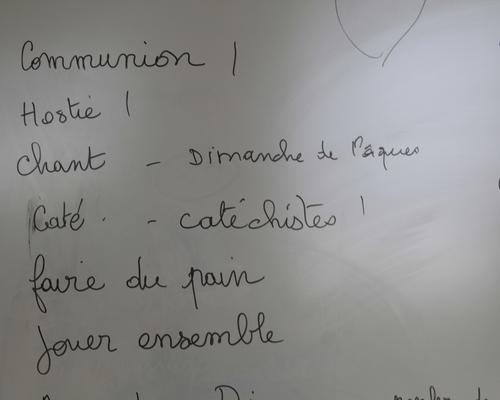 Communion |
Hostie |
chant - Dimanche de Pâques
Caté. - catéchistes |
faire du pain
Jouer ensemble